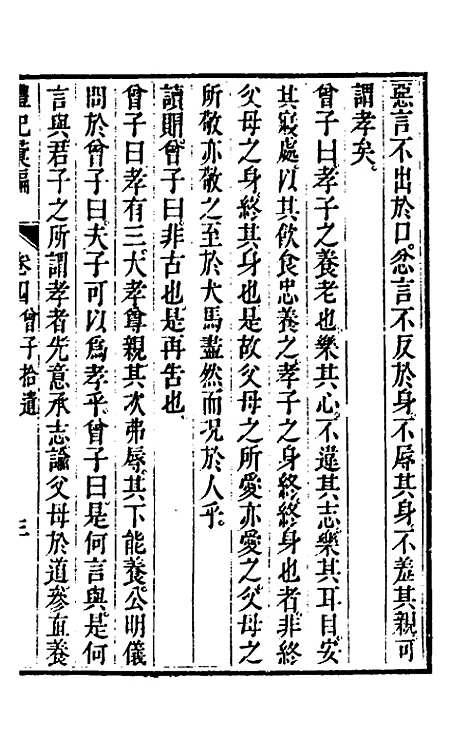 惡言不出於口忿言不反於身不辱其身不羞其親可
謂孝矣。
曾子曰孝子之養老也樂其心不違其志樂其耳目安
其寢處以其飲食忠養之孝子之身終終身也者非終
父母之身終其身也是故父母之所愛亦愛之父母之
所敬亦敬之至於犬馬盡然而況於人乎。
讀賵曾子曰非古也是再告也
曾子曰孝有三大孝尊親其次弗辱其下能養公明儀
問於曾子曰夫子可以為孝乎曾子曰是何言與是何
言與君子之所謂孝者先意承志諭父母於道參直養
禮記彙編 卷四曾子拾遺 三